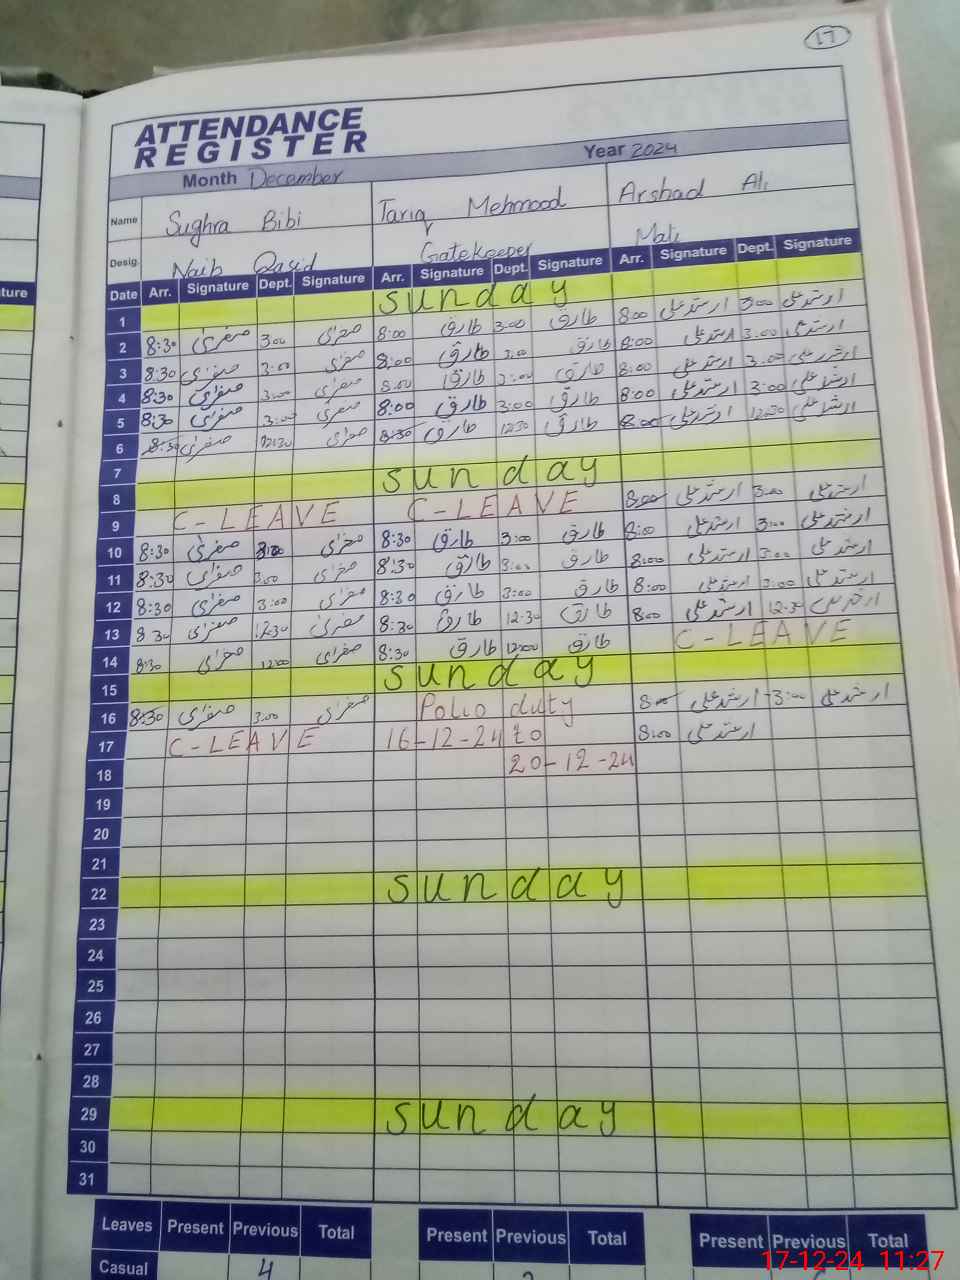 17
ATTENDANCE
REGISTER
Month December Year 2024
Name Sughra Bibi Tariq Mehmood Arshad Ali
Desig. Naib Qasid Gatekeeper Mali
Date Arr. Signature Dept. Signature Arr. Signature Dept. Signature Arr. Signature Dept. Signature
1 sunday
2 8:30 صغریٰ 3:00 صغریٰ 8:00 طارق 3:00 طارق 8:00 ارشد علی 3:00 ارشد علی
3 8:30 صغریٰ 3:00 صغریٰ 8:00 طارق 3:00 طارق 8:00 ارشد علی 3:00 ارشد علی
4 8:30 صغریٰ 3:00 صغریٰ 8:00 طارق 3:00 طارق 8:00 ارشد علی 3:00 ارشد علی
5 8:30 صغریٰ 3:00 صغریٰ 8:00 طارق 3:00 طارق 8:00 ارشد علی 3:00 ارشد علی
6 8:30 صغریٰ 12:30 صغریٰ 8:30 طارق 12:30 طارق 8:00 ارشد علی 12:30 ارشد علی
7
8 sunday
9 C-LEAVE C-LEAVE 8:00 ارشد علی 3:00 ارشد علی
10 8:30 صغریٰ 3:00 صغریٰ 8:30 طارق 3:00 طارق 8:00 ارشد علی 3:00 ارشد علی
11 8:30 صغریٰ 3:00 صغریٰ 8:30 طارق 3:00 طارق 8:00 ارشد علی 3:00 ارشد علی
12 8:30 صغریٰ 3:00 صغریٰ 8:30 طارق 3:00 طارق 8:00 ارشد علی 3:00 ارشد علی
13 8:30 صغریٰ 12:30 صغریٰ 8:30 طارق 12:30 طارق 8:00 ارشد علی 12:30 ارشد علی
14 8:30 صغریٰ 12:00 صغریٰ 8:30 طارق 12:00 طارق C-LEAVE
15 sunday
16 8:30 صغریٰ 3:00 صغریٰ Polio duty 8:00 ارشد علی 3:00 ارشد علی
17 C-LEAVE 16-12-24 to 8:00 ارشد علی
18 20-12-24
19
20
21
22 sunday
23
24
25
26
27
28
29 sunday
30
31
Leaves Present Previous Total Present Previous Total Present Previous Total
Casual 4
17-12-24 11:27